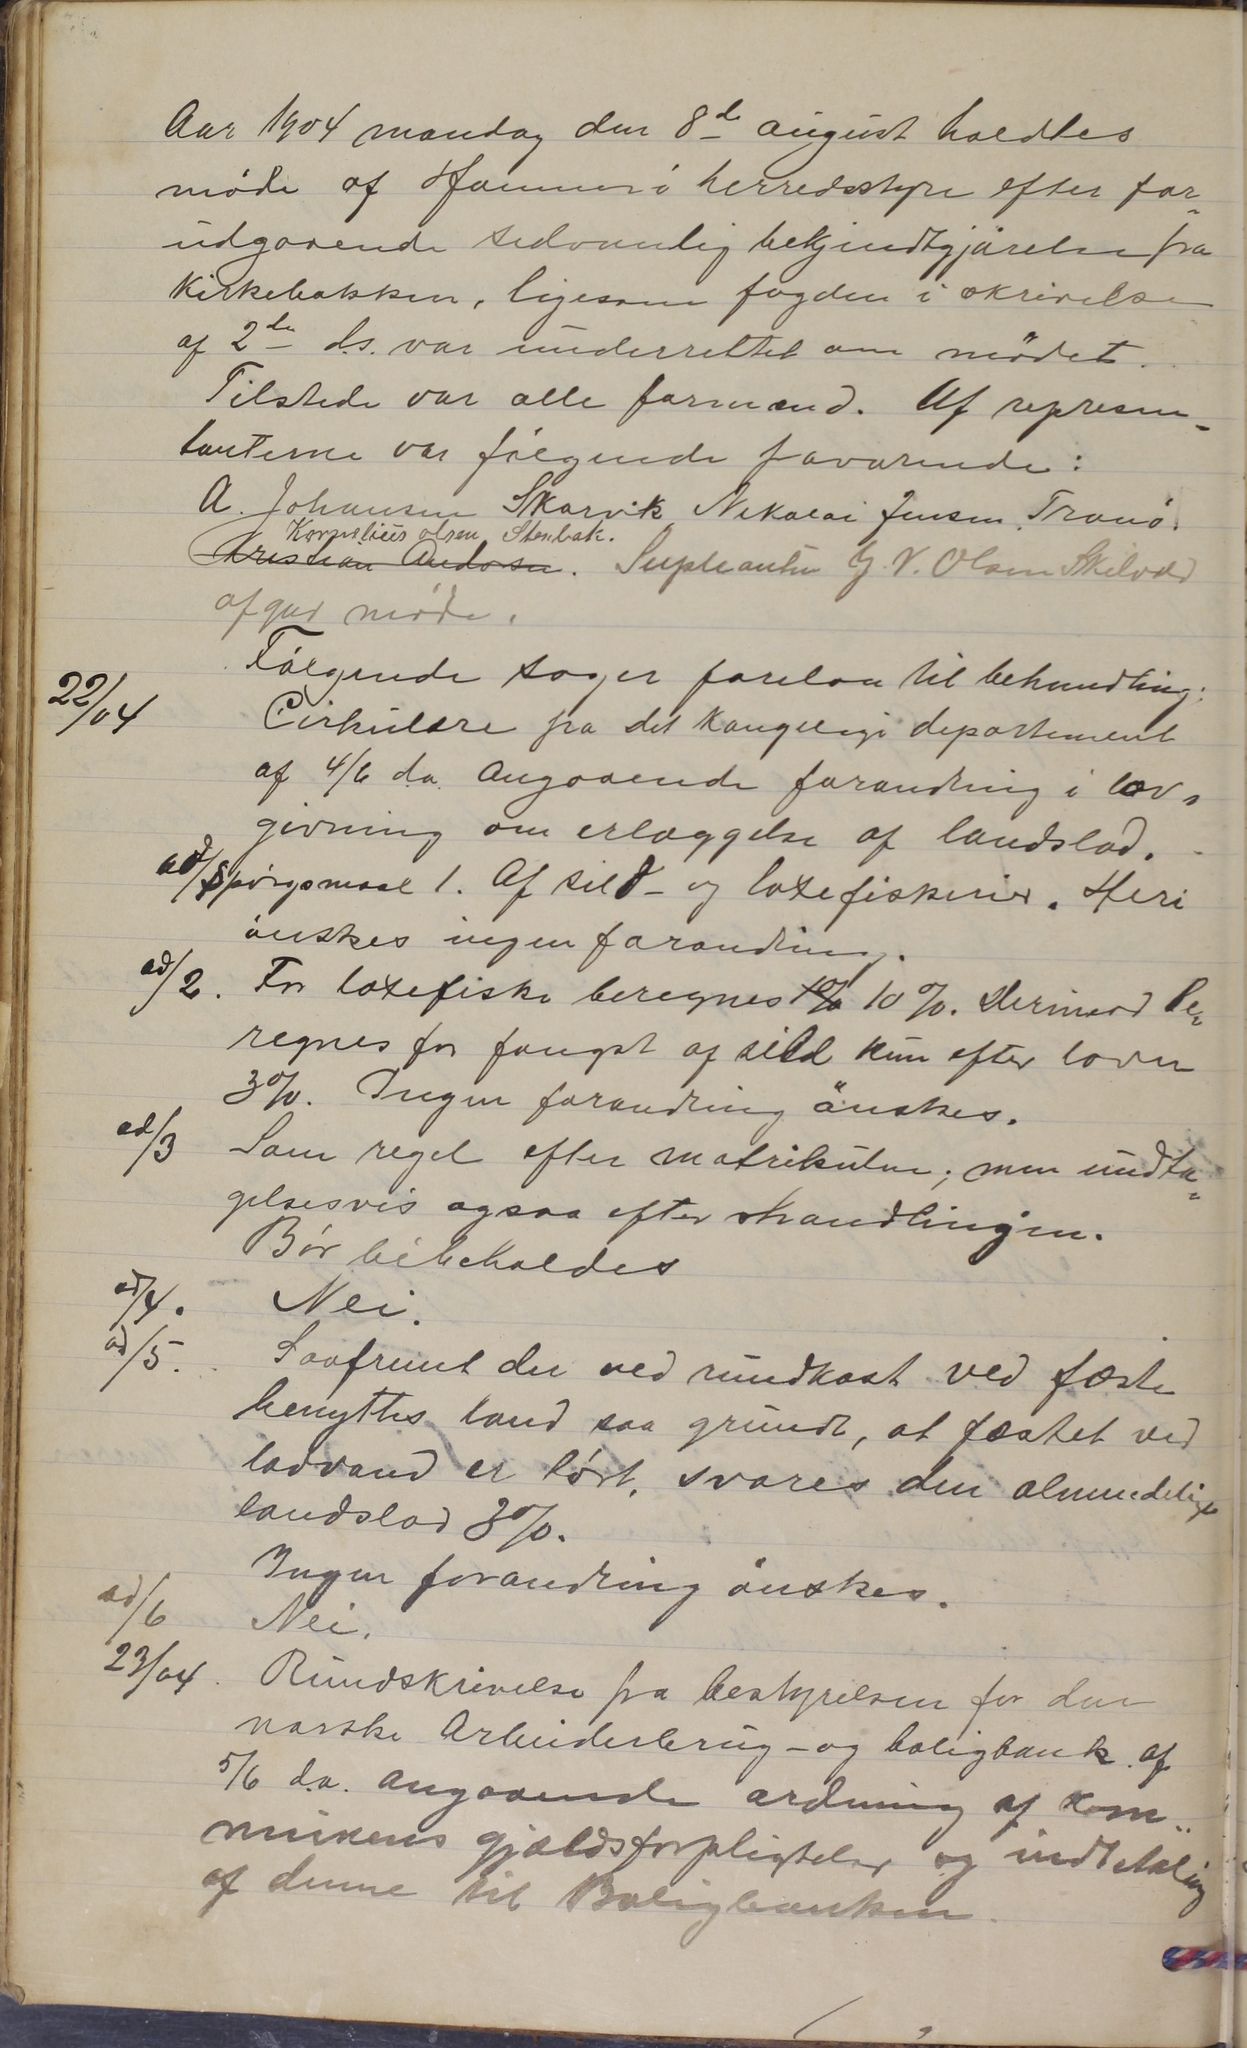 Aar 1904 mandag den 8de august holdtes
möde af Hammerö herredsstyre efter for-
udgaaende sedvanlig bekjendtgjörelse fra
Kirkebakken, ligesom fogden i skrivelse
af 2de ds. var underrettet om mödet.
Tilstede var alle formænd. Af represen-
tanterne var fölgende fraværende:
A. Johansen Skarvik, Nikolai Jensen, Tranö.
Kornelius olsen Stenbak.
Kristian Andorsen. Supleanten G. V. Olsen Skilvad
afgav möde.
Fölgende sager forelaa til behandling:
22/04 Cirkulære fra det kongelige departement
af 4/6 d.a. angaaende forandring i lov-
givning om erlæggelse af landslod.
ad/ Spörgsmaal 1. Af sild- og laxefiskerier. Heri
önskes ingen forandring.
ad/2. For laxefiske beregnes 10% 10%. Derimod be-
regnes for fangst af sild kun efter loven
3%. Ingen forandring önskes.
ad/3 Som regel efter matrikulen; men undta-
gelsesvis ogsaa efter strandlinjen.
Bör bibeholdes
ad/4. Nei.
ad/5. Saafremt der ved nudkast ved fæste
benyttes land saa grundt, at fæstet ved
lavvand er tört, svares den almindelige
landslod 3%.
Ingen forandring önskes.
ad/6 Nei.
23/04. Rundskrivelse fra bestyrelsen for den
norske Arbeiderbrug- og boligbank af
5/6 d.a. angaaende ordning af kom-
munens gjældsforpligtelser og indbetaling
af denne til Boligbanken.